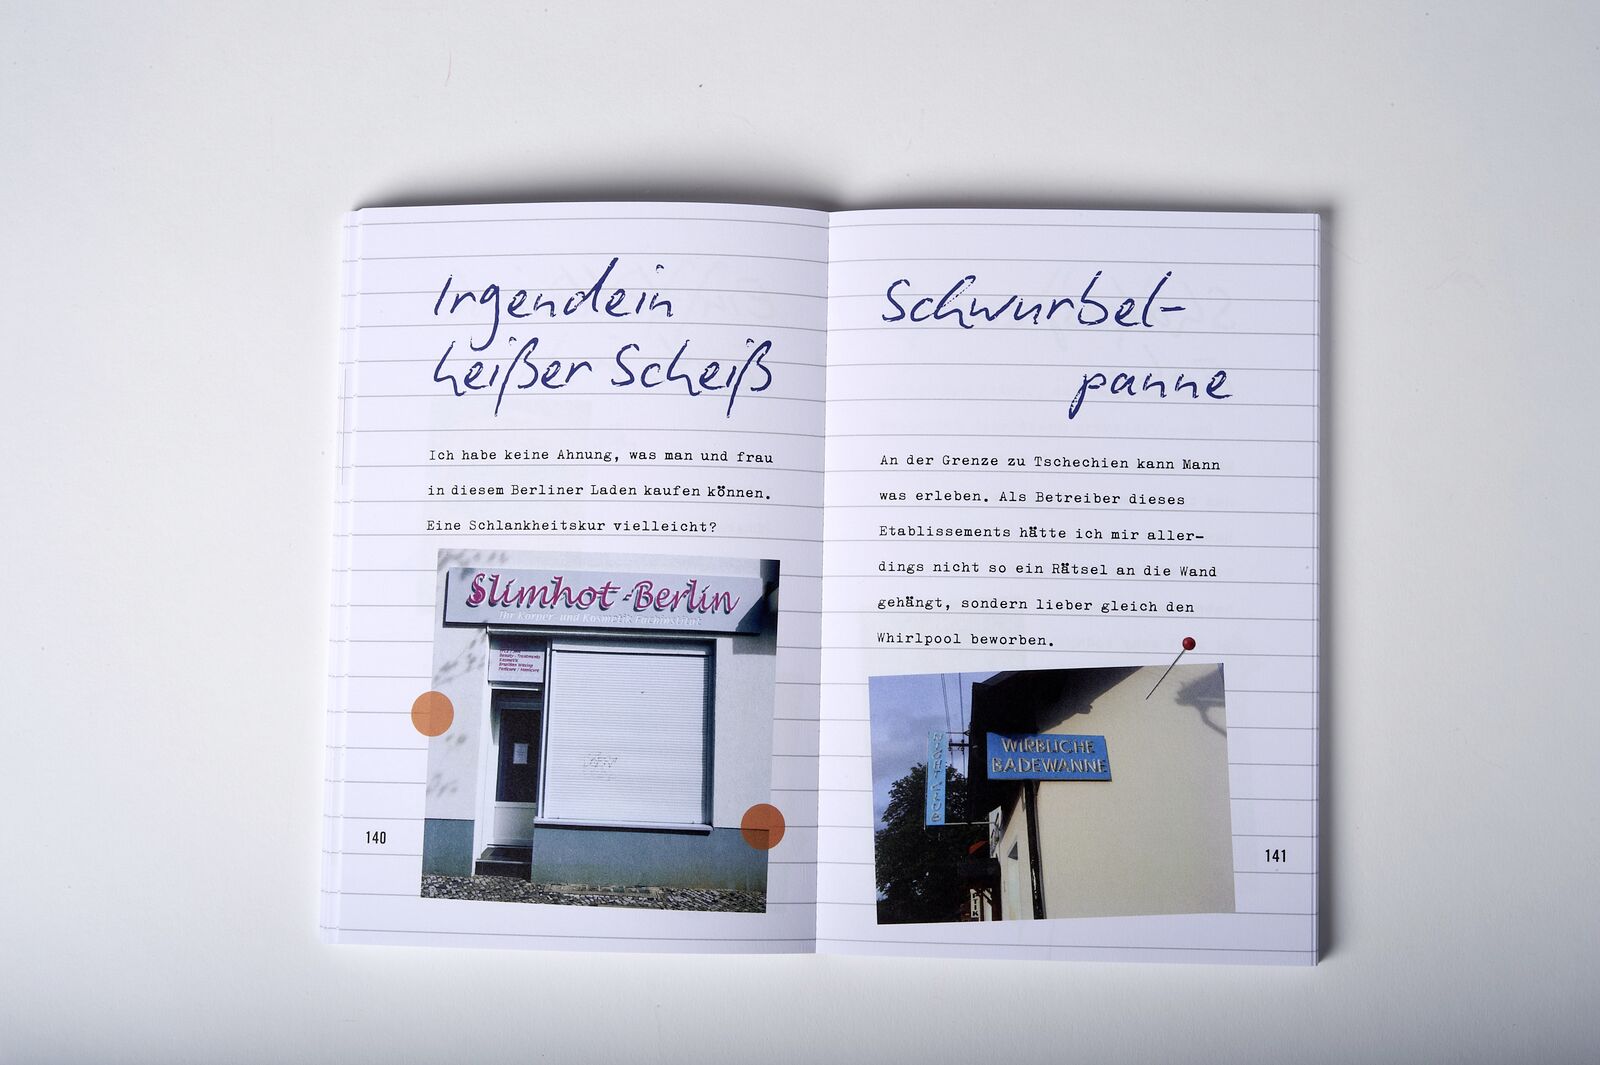 Irgendein
heißer Scheiß
Ich habe keine Ahnung, was man und frau
in diesem Berliner Laden kaufen können.
Eine Schlankheitskur vielleicht?
Slimhot-Berlin
Ihr Körper- und Kosmetik Fachinstitut
Beauty-Treatments
Kosmetik
Brazilian Waxing
Pediküre / Maniküre
140
Schwurbel-
panne
An der Grenze zu Tschechien kann Mann
was erleben. Als Betreiber dieses
Etablissements hätte ich mir aller-
dings nicht so ein Rätsel an die Wand
gehängt, sondern lieber gleich den
Whirlpool beworben.
NIGHT CLUB
WIRBLICHE
BADEWANNE
141